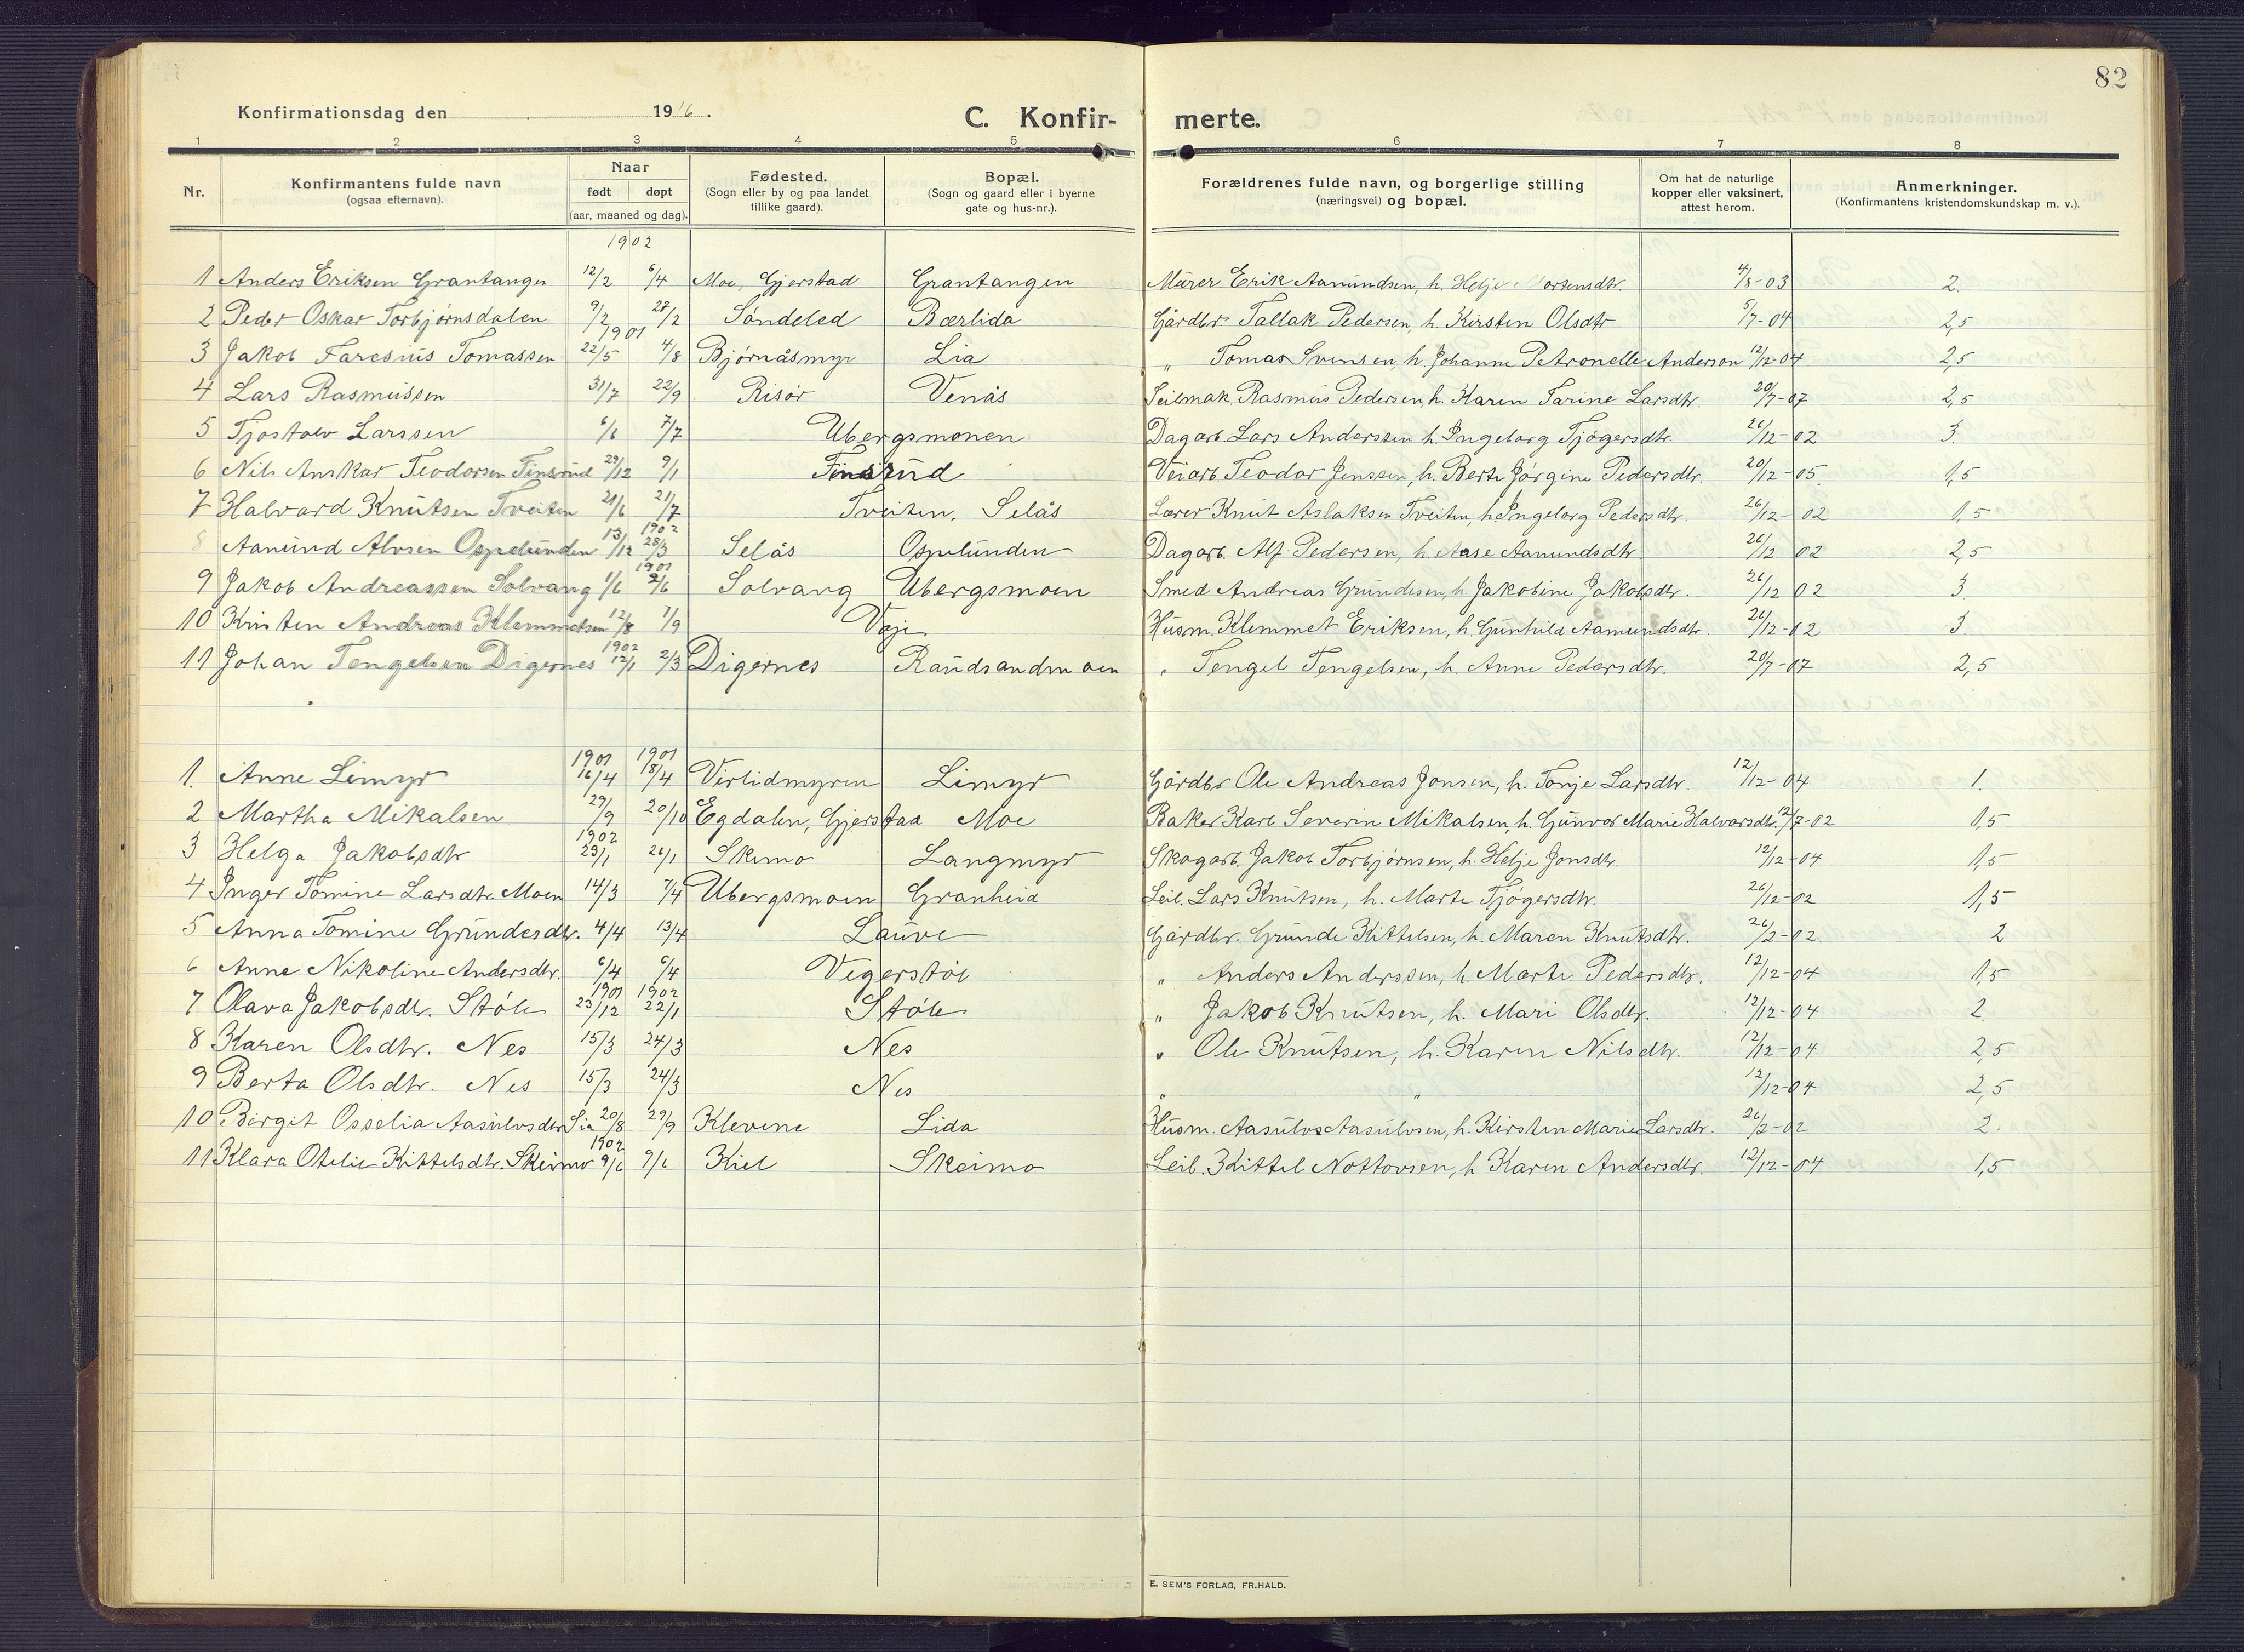 82
Konfirmationsdag den 1916.
C. Konfir- merte.
1 2 3 4 5 6 7 8
Nr. Konfirmantens fulde navn (ogsaa efternavn). Naar født døpt (aar, maaned og dag). Fødested. (Sogn eller by og paa landet tillike gaard). Bopæl. (Sogn og gaard eller i byerne gate og hus-nr.). Forældrenes fulde navn, og borgerlige stilling (næringsvei) og bopæl. Om hat de naturlige kopper eller vaksinert, attest herom. Anmerkninger. (Konfirmantens kristendomskundskap m. v.).
1902
1 Anders Eriksen Grantangen 12/2 6/4 Moe, Gjerstad Grantangen Murer Erik Aanundsen, h. Helje Mortensdtr. 4/8-03 2.
2 Peder Oskar Torbjørnsdalen 9/2 27/2 Søndeled Bærlida Gårdbr Tallak Pedersen, h. Kirsten Olsdtr 5/7-04 2,5
1901
3 Jakob Faresius Tomassen 22/5 4/8 Bjørnåsmyr Lia " Tomas Svensen, h. Johanne Petronelle Anderson 12/12-04 2,5
4 Lars Rasmussen 31/7 22/9 Risør Venås Seilmak. Rasmus Pedersen, h. Karen Tarine Larsdtr. 20/7-07 2,5
5 Tjostolv Larssen 6/6 7/7 Ubergsmonen Dagarb. Lars Anderssen h. Ingeborg Tjøgersdtr. 26/12-02 3
6 Nils Anskar Teodorsen Finsrud 29/12 9/1 Finsrud Veiarb. Teodor Jenssen, h. Berte Jørgine Pedersdtr. 20/12-05. 1,5
7 Halvard Knutsen Tveiten 21/6 21/7 Tveiten, Selås Lærer Knut Aslaksen Tveiten, h. Ingeborg Pedersdtr. 26/12-02 1,5
1902
8 Aanund Alvsen Ospelunden 13/12 28/3 Selås Ospelunden Dagarb. Alf Pedersen, h. Aase Aanundsdtr 26/12 02 2,5
1901
9 Jakob Andreassen Solvang 1/6 2/6 Solvang Ubergsmoen Smed Andreas Grundesen, h. Jakobine Jakobsdtr. 26/12 02 3
10 Kristen Andreas Klemmetsen 12/8 1/9 Vaje Husm. Klemmet Eriksen, h. Gunhild Aamundsdtr. 26/12-02 3.
1902
11 Johan Tengelsen Digernes 12/1 2/3 Digernes Raudsandmoen " Tengel Tengelsen, h. Anne Pedersdtr. 20/7-07 2,5
1901 1901
1. Anne Limyr 16/4 18/4 Virlidmyren Limyr Gårdbr Ole Andreas Jonsen, h. Tonje Larsdtr. 12/12-04 1.
2 Martha Mikalsen 29/9 20/10 Egdalen, Gjerstad Moe Baker Karl Severin Mikalsen, h. Gunvor Marie Halvorsdtr. 12/7-02 1,5
1902
3 Helga Jakobsdtr 23/1 26/1 Skimo Langmyr Skogarb. Jakob Torbjørnsen, h. Helje Jonsdtr. 12/12-04 1,5
4 Inger Tomine Larsdtr. Moen 14/3 7/4 Ubergsmoen Granheia Leil. Lars Knutsen, h. Marte Tjøgersdtr. 26/12-02 1,5
5 Anna Tomine Grundesdtr. 4/4 13/4 Lauve Gårdbr. Grunde Kittelsen, h. Maren Knutsdtr. 26/2-02 2
6 Anne Nikoline Andersdtr. 6/4 6/4 Vegerstøl " Anders Anderssen, h Marte Pedersdtr. 12/12-04 1,5
1901 1902
7 Olava Jakobsdtr. Støle 23/12 22/1 Støle " Jakob Knutsen, h. Mari Olsdtr. 12/12-04 2
8 Karen Olsdtr. Nes 15/3 24/3 Nes " Ole Knutsen, h. Karen Nilsdtr. 12/12-04 2,5
9 Berta Olsdtr. Nes 15/3 24/3 Nes " " 12/12-04 2,5
10 Borgit Osselia Aasulvsdtr Lia 20/8 29/9 Klevene Lida Husm. Aasulv Aasulvsen, h. Kirsten Marie Larsdtr. 26/2-02 2.
1902
11 Klara Otelie Kittelsdtr. Skeimo 9/6 9/6 Kiel Skeimo Leil. Kittel Nottovsen, h Karen Andersdtr. 12/12-04 1,5
E. SEM'S FORLAG, FR.HALD.